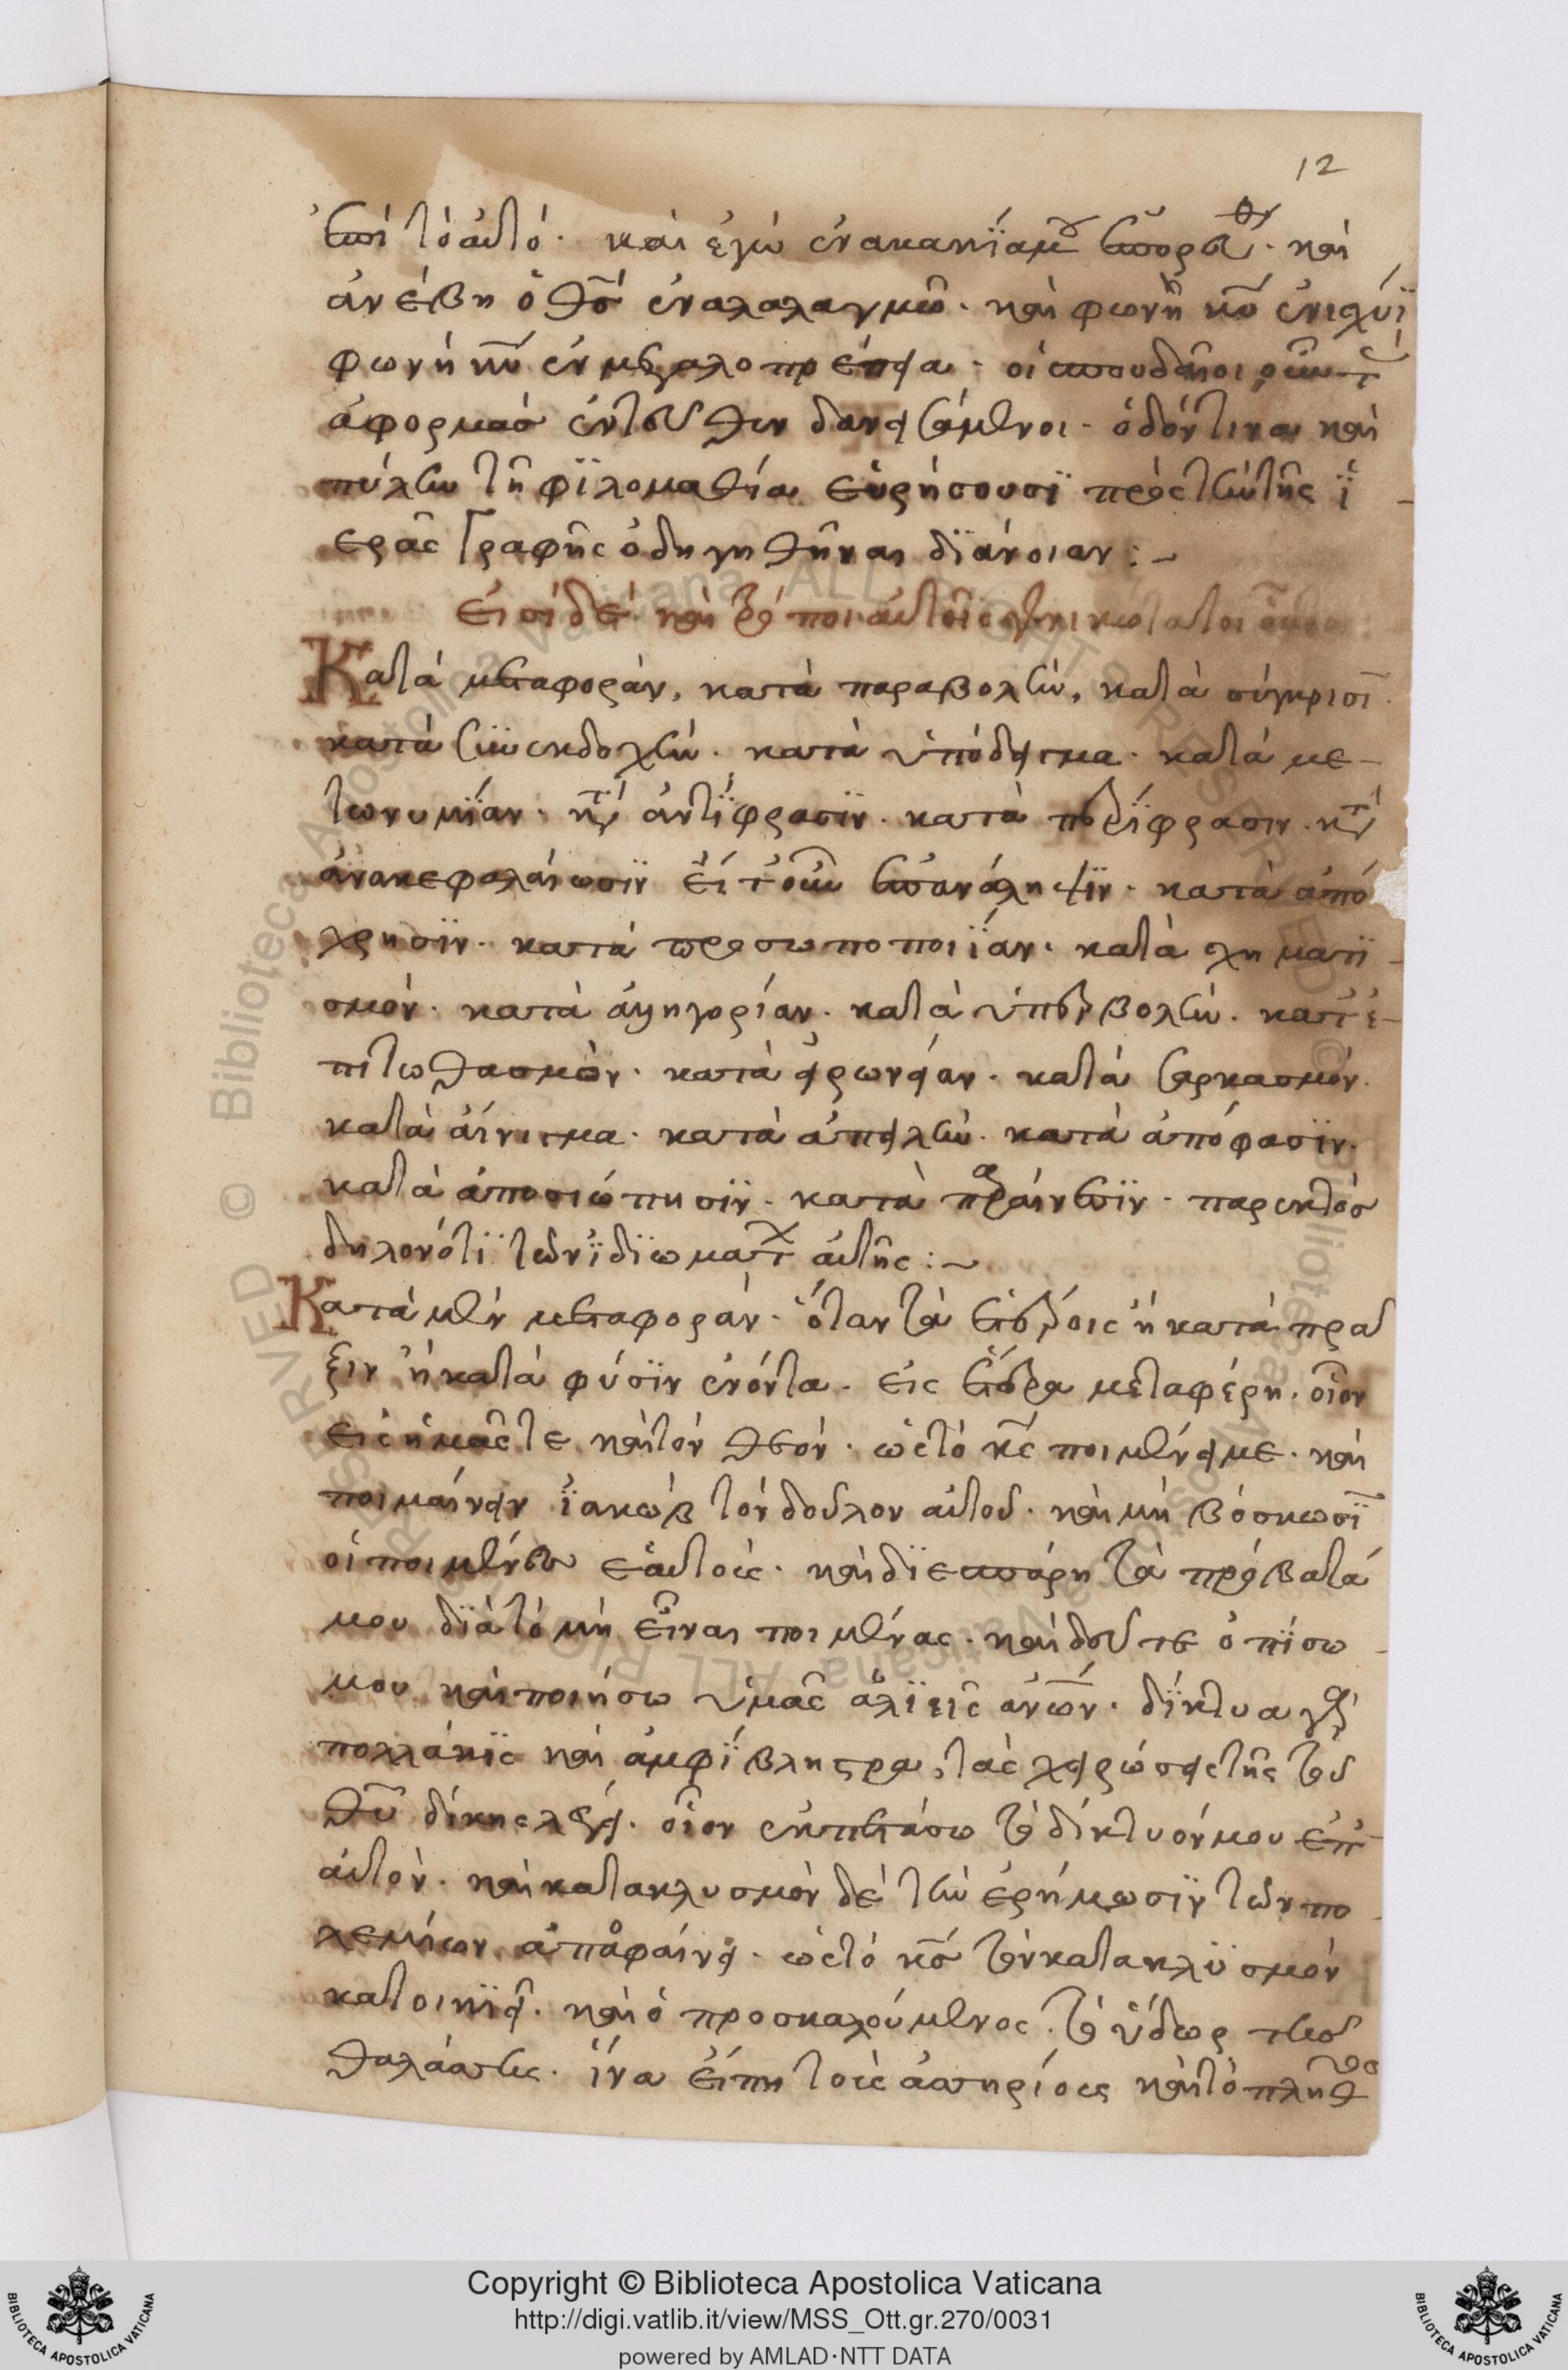 12
ἐπὶ τὸ αὐτό· καὶ ἐγὼ ἐν ἀκακίᾳ μου ἐπορεύθην· καὶ
ἀνέβη ὁ θς ἐν ἀλαλαγμῷ· καὶ φωνὴ κυ ἐν ἰσχύϊ
φωνὴ κυ ἐν μεγαλοπρεπείᾳ· οἱ σπουδαῖοι οὖν τὰς
ἀφορμὰς ἐντεῦθεν δανεισάμενοι· ὁδόν τινα καὶ
πύλην τῇ φιλομαθίᾳ εὑρήσουσι πρὸς τὴν τῆς ἱ
ερᾶς γραφῆς ὁδηγηθῆναι διάνοιαν :~
εἰσὶ δὲ καὶ τρόποι αὐτοῖς γενικώτατοι
Κατὰ μεταφορὰν, κατὰ παραβολὴν, κατὰ σύγκρισι
κατὰ συνεκδοχὴν· κατὰ ὑπόδειγμα· κατὰ με
τωνυμίαν· κτ ἀντίφρασιν· κατὰ περίφρασιν· κτ
ἀνακεφαλαίωσιν εἴτουν ἐπανάληψιν· κατὰ ἀπό
χρησιν· κατὰ προσωποποιίαν· κατὰ σχηματι
σμὸν· κατὰ ἀλληγορίαν· κατὰ ὑπερβολὴν· κατ ἐ
πιτωθασμὸν· κατὰ εἰρωνείαν· κατὰ σαρκασμόν·
κατὰ αἴνιγμα· κατὰ ἀπειλὴν· κατὰ ἀπόφασιν·
κατὰ ἀποσιώπησιν· κατὰ παραίνεσιν· παρεκτὸς
δηλονότι τῶν ἰδιωμάτων αὐτῆς :~
Κατὰ μὲν μεταφορὰν· ὅταν τὰ ἑτέροις ἢ κατὰ πρᾶ
ξιν ἢ κατὰ φύσιν ἐνόντα· εἰς ἕτερα μεταφέρῃ· οἷον
εἰς ἡμᾶς τε καὶ τὸν θεόν· ὡς τὸ κς ποιμένει με· καὶ
ποιμαίνειν ἰακὼβ τὸν δοῦλον αὐτοῦ· καὶ μὴ βόσκωσι
οἱ ποιμένες ἑαυτοὺς· καὶ διεσπάρη τὰ πρόβατά
μου διὰ τὸ μὴ εἶναι ποιμένας· καὶ δεῦτε ὀπίσω
μου καὶ ποιήσω ὑμᾶς ἁλιεῖς ἀνων· δίκτυα γὰρ
πολλάκις καὶ ἀμφίβληστρα, τὰς χειρώσεις τῆς τοῦ
θυ δίκης λέγει· οἷον ἐκπετάσω τὸ δίκτυόν μου ἐπ
αὐτὸν· καὶ κατακλυσμὸν δὲ τὴν ἐρήμωσιν τῶν πο
λεμίων ἀποφαίνει· ὡς τὸ κς τὸν κατακλυσμὸν
κατοικιεῖ· καὶ ὁ προσκαλούμενος τὸ ὕδωρ τῆς
θαλάσσης· ἵνα εἴπῃ τοὺς ἀσσυρίους καὶ τὸ πλῆθος
Copyright © Biblioteca Apostolica Vaticana
http://digi.vatlib.it/view/MSS_Ott.gr.270/0031
powered by AMLAD·NTT DATA
BIBLIOTECA APOSTOLICA VATICANA
BIBLIOTECA APOSTOLICA VATICANA